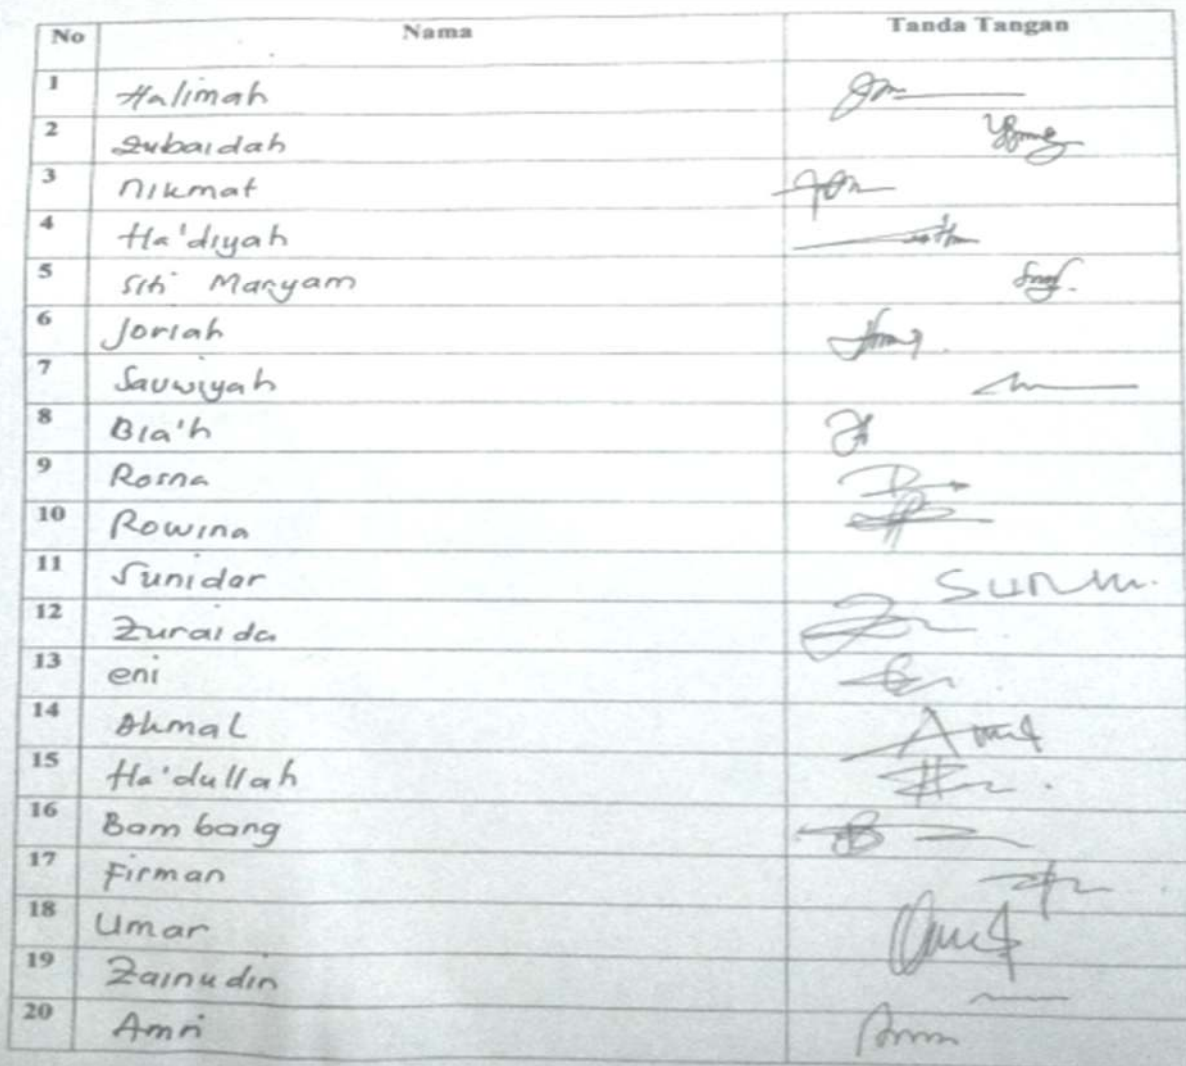 No Nama Tanda Tangan
1 Halimah
2 Zubaidah
3 Nikmat
4 Ha'diyah
5 Siti Maryam
6 Joriah
7 Sauwiyah
8 Bia'h
9 Rosna
10 Rowina
11 Sunidar
12 Zuraida
13 eni
14 Akmal
15 Ha'dullah
16 Bambang
17 Firman
18 Umar
19 Zainudin
20 Amri